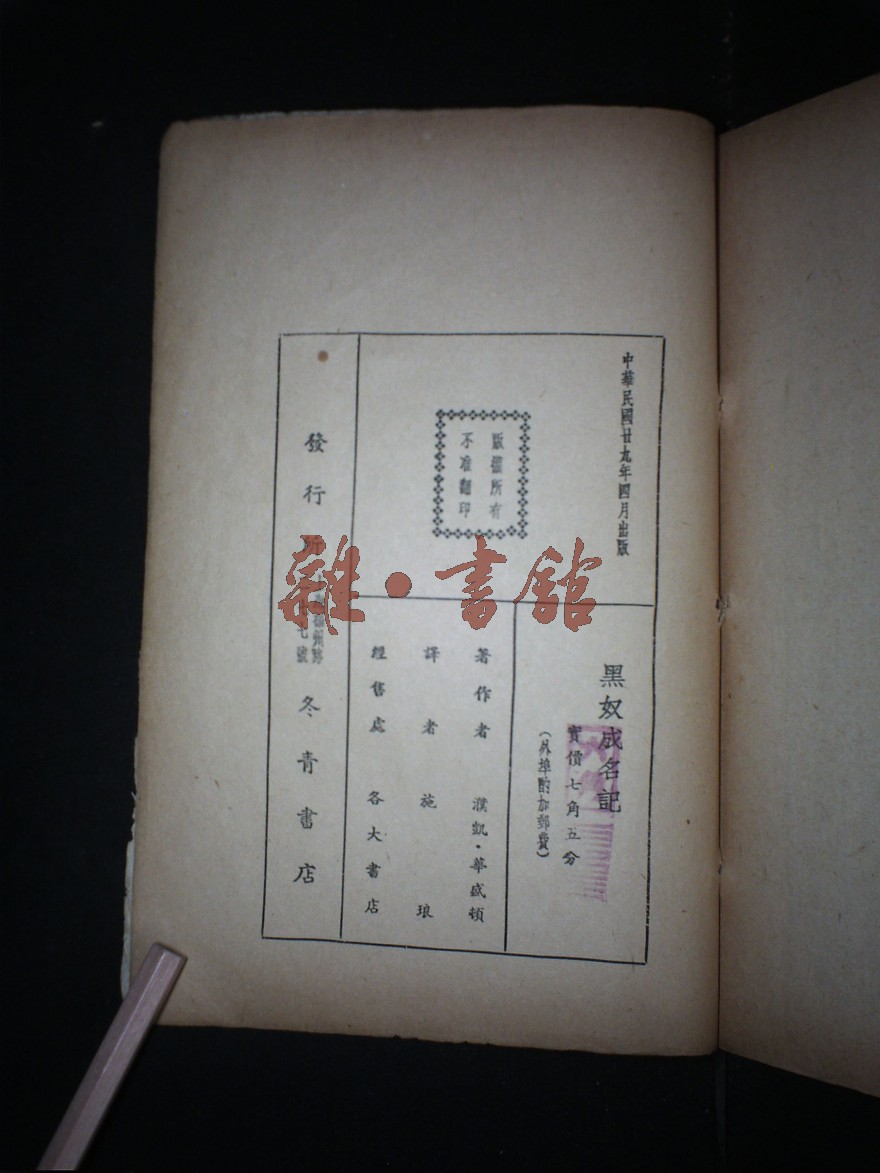 中華民國廿九年四月出版
版權所有
不准翻印
黑奴成名記
實價七角五分
（外埠酌加郵費）
著作者 濮凱・華盛頓
譯者 施瑯
經售處 各大書店
發行所 冬青書店
雜・書館